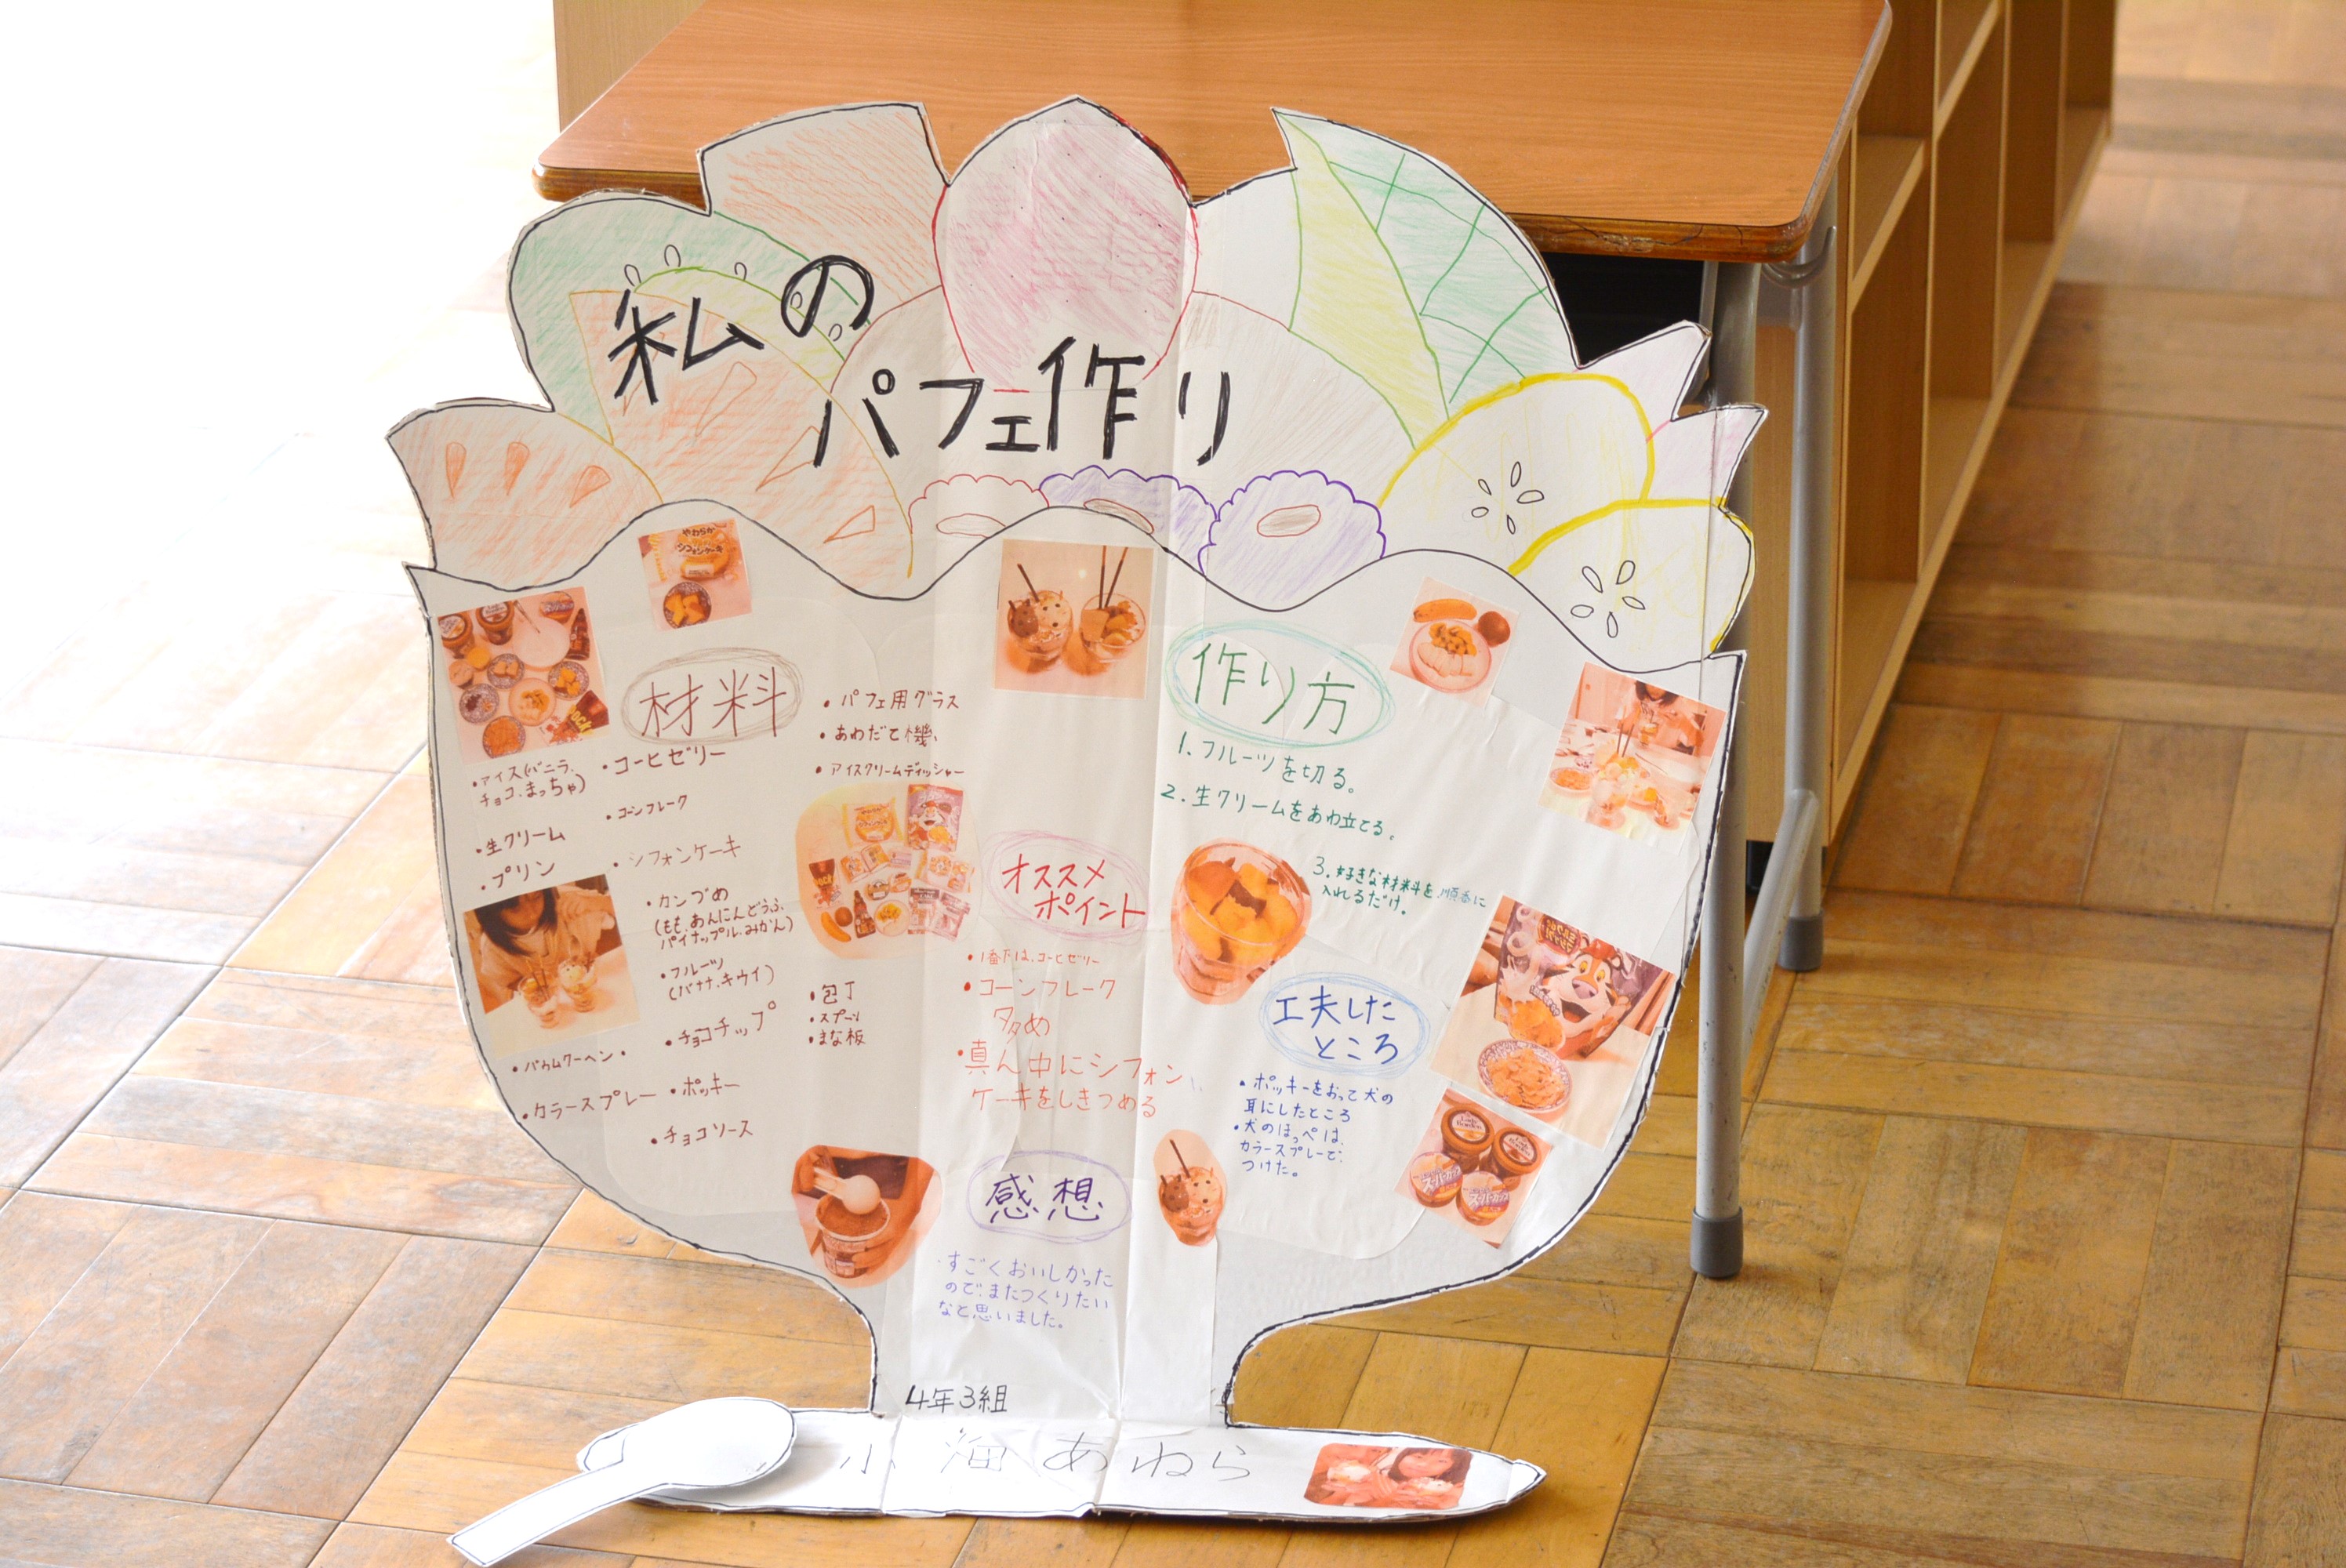 私の
パフェ作り
材料
・アイス(バニラ、
チョコ、まっちゃ)
・生クリーム
・プリン
・バウムクーヘン・
・カラースプレー
・コーヒゼリー
・コーンフレーク
・シフォンケーキ
・カンヅめ
(もも、あんにんどうふ、
パイナップル、みかん)
・フルーツ
(バナナ、キウイ)
・チョコチップ
・ポッキー
・チョコソース
・パフェ用グラス
・あわだて機、
・アイスクリームディッシャー
・包丁
・スプーン
・まな板
オススメ
ポイント
・1番下は、コーヒゼリー
・コーンフレーク
多め
・真ん中にシフォン
ケーキをしきつめる
作り方
1.フルーツを切る。
2.生クリームをあわ立てる。
3.好きな材料を順番に
入れるだけ。
工夫した
ところ
・ポッキーをおって犬の
耳にしたところ
・犬のほっぺは、
カラースプレーで、
つけた。
感想
・すごくおいしかった
ので、またつくりたい
なと思いました。
4年3組
小海あねら
やわらか
シフォンケーキ
スーパーカップ
スーパーカップ